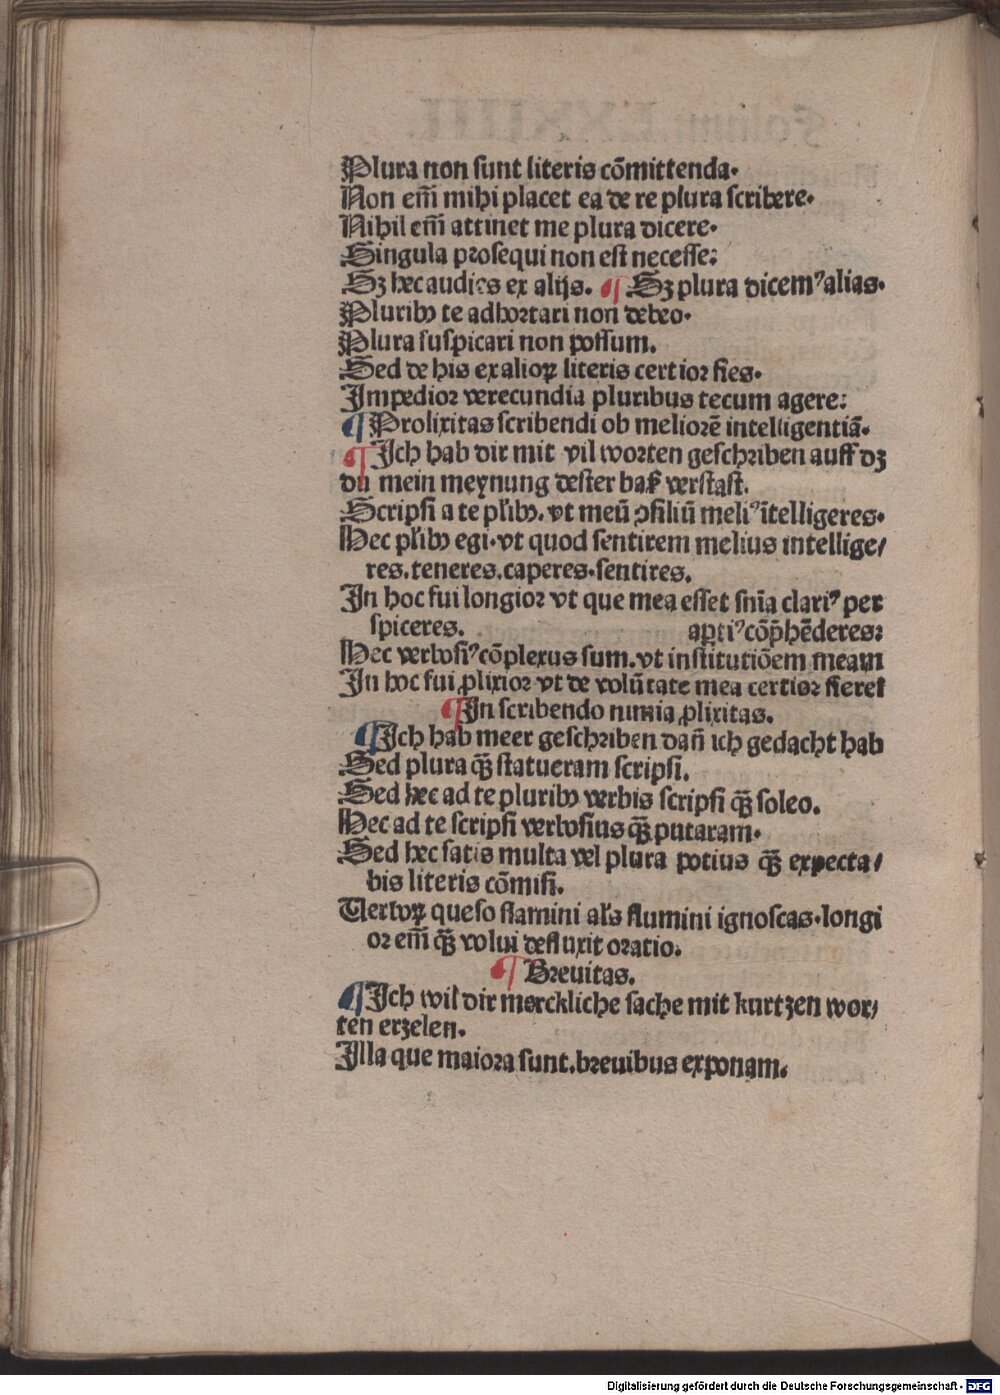 Plura non sunt literis cõmittenda.
Non em̃ mihi placet ea de re plura scribere.
Nihil em̃ attinet me plura dicere.
Singula prosequi non est necesse:
Sꝫ hec audies ex alijs. ¶ Sꝫ plura dicemꝰ alias.
Pluribꝰ te adhortari non debeo.
Plura suspicari non possum.
Sed de his ex alioꝝ literis certior fies.
Impedior verecundia pluribus tecum agere:
¶ Prolixitas scribendi ob meliorẽ intelligentiã.
¶ Ich hab dir mit vil worten geschriben auff dz
du mein meynung dester baß verstast.
Scripsi a te pl'ibꝰ. vt meũ ↄsiliũ meliꝰ ĩtelligeres.
Hec pl'ibꝰ egi. vt quod sentirem melius intellige/
res. teneres. caperes. sentires.
In hoc fui longior vt que mea esset sñia clariꝰ per
spiceres. aptiꝰ cõp̃hẽderes:
Hec verbosiꝰ cõplexus sum. vt institutiõem meam
In hoc fui ꝓlixior vt de volũtate mea certior fieret
¶ In scribendo nimia ꝓlixitas.
¶ Ich hab meer geschriben dañ ich gedacht hab
Sed plura q̃ꝫ statueram scripsi.
Sed hec ad te pluribꝰ verbis scripsi q̃ꝫ soleo.
Hec ad te scripsi verbosius q̃ꝫ putaram.
Sed hec satis multa vel plura potius q̃ꝫ expecta/
bis literis cõmisi.
Verboꝝ queso flamini al's flumini ignoscas. longi
or em̃ q̃ꝫ volui defluxit oratio.
¶ Breuitas.
¶ Ich wil dir merckliche sache mit kurtzen wor/
ten erzelen.
Illa que maiora sunt. breuibus exponam.
Digitalisierung gefördert durch die Deutsche Forschungsgemeinschaft - DFG